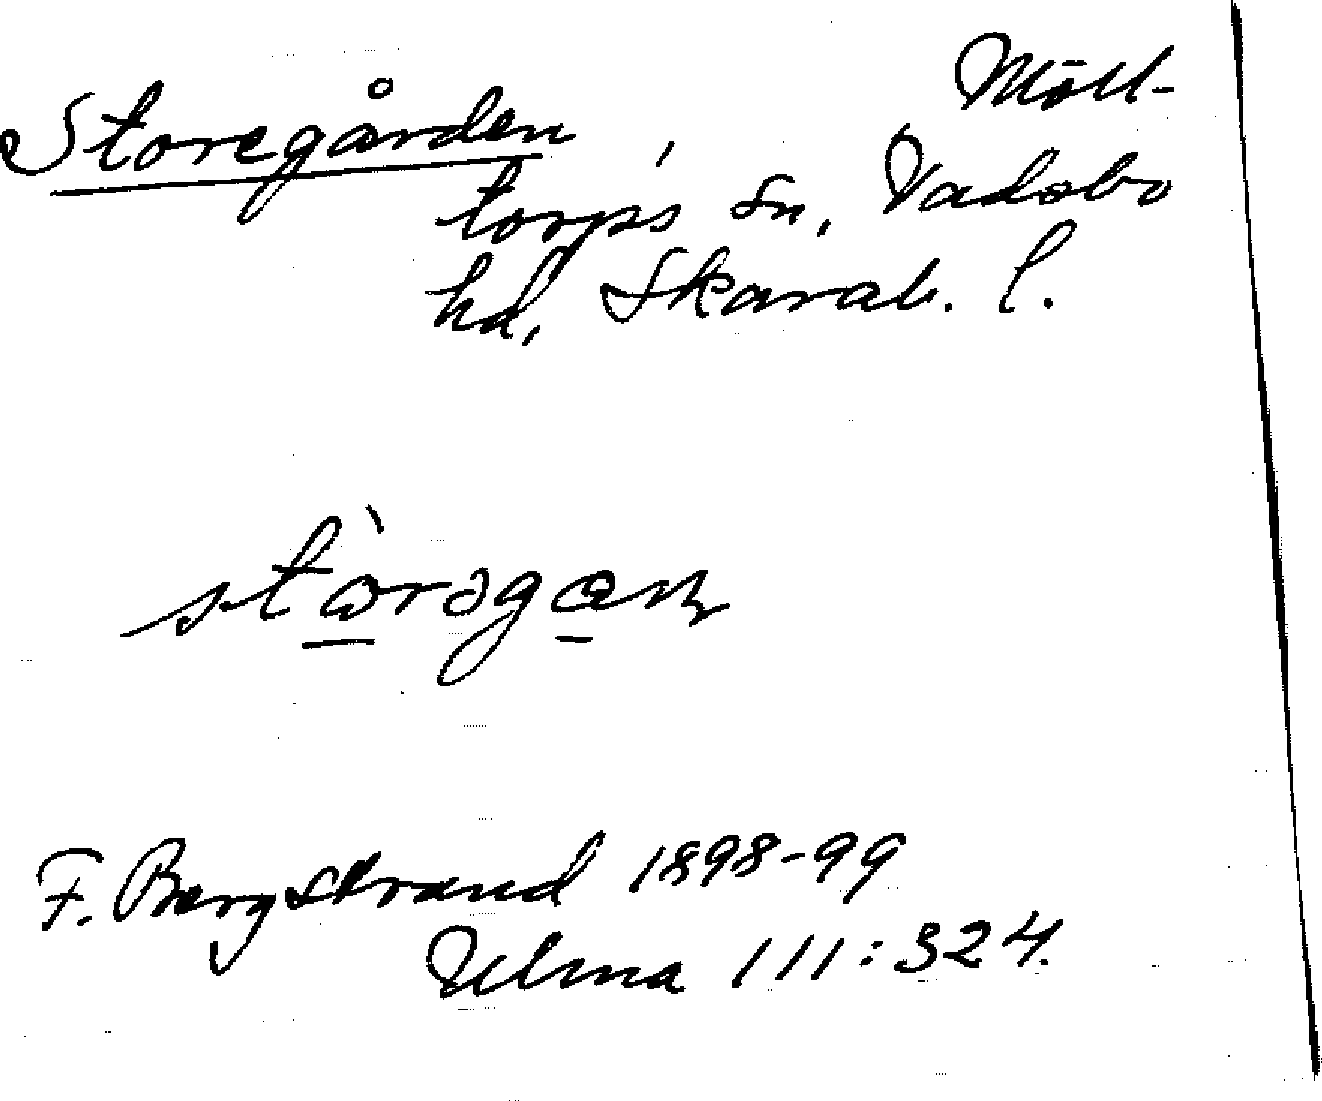 Storegården, Mölltorps sn, Vadsbo
hd, Skarab. l.
F. Bergstrand 1898-99
Ulma 111:324.